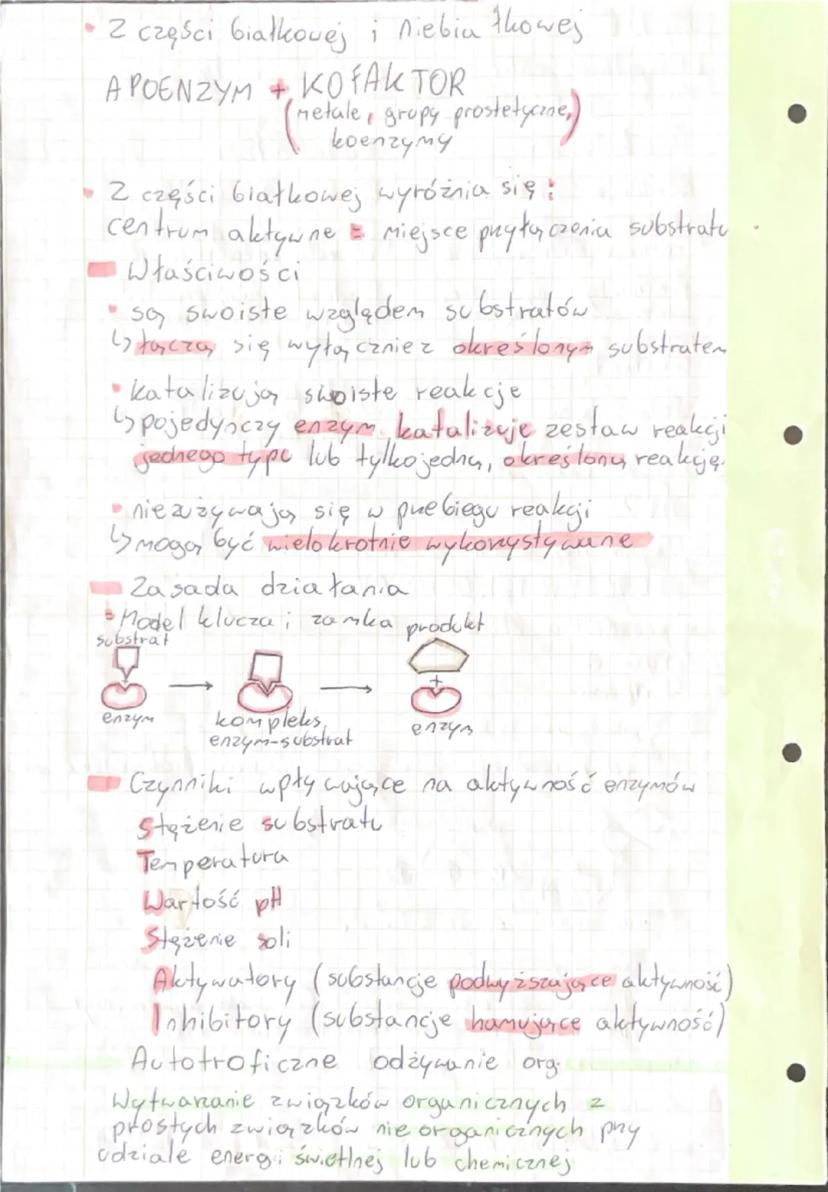 • Z części białkowej i niebiałkowej
APOENZYM + KOFAKTOR
(metale, grupy prostetyczne,
koenzymy)
• Z części białkowej wyróżnia się:
centrum aktywne = miejsce przyłączenia substratu
Właściwości
• są swoiste względem substratów
↳ łączą się wyłącznie z określonym substratem
• katalizują swoiste reakcje
↳ pojedynczy enzym katalizuje zestaw reakcji
jednego typu lub tylko jedną, określoną reakcję.
• nie zużywają się w przebiegu reakcji
↳ mogą być wielokrotnie wykorzystywane
Zasada działania
• Model klucza i zamka
produkt
substrat
+
+
enzym
kompleks
enzym-substrat
enzym
Czynniki wpływające na aktywność enzymów
Stężenie substratu
Temperatura
Wartość pH
Stężenie soli
Aktywatory (substancje podwyższające aktywność)
Inhibitory (substancje hamujące aktywność)
Autotroficzne odżywianie org.
Wytwarzanie związków organicznych z
prostych związków nieorganicznych przy
udziale energii świetlnej lub chemicznej